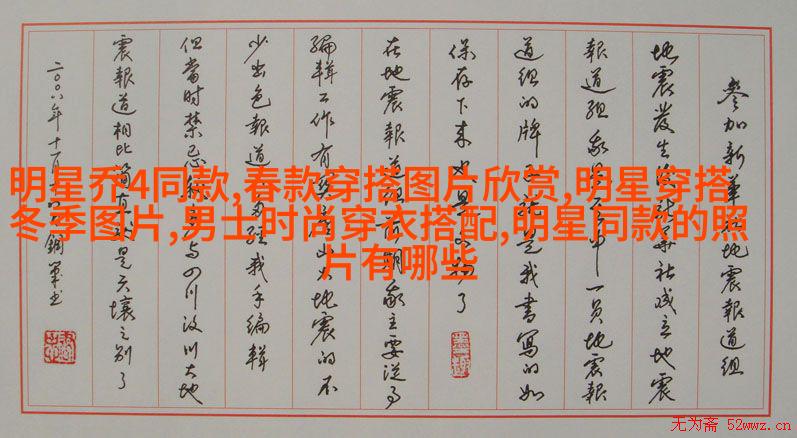 明星乔4同款,春款穿搭图片欣赏,明星穿搭
冬季图片,男士时尚穿衣搭配,明星同款的照
片有哪些
参加新華社地震報道組
地震發生後 華社成立地震
報道组 中一员地震報
道组的牌 是我書写的如
保存下来 了
在地震報道组前期 主要從事
编辑工作有 山大地震的不
少出色報道 经我手编辑
但當时禁忌 与四川汶川大地
震報道相比简直 是天壤之别了
二〇〇八年十一月 書
无为斋 52wwz.cn